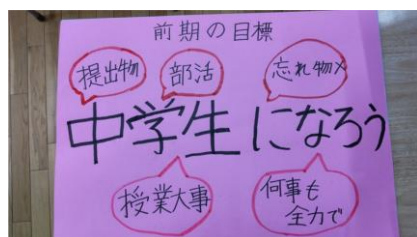 前期の目標
提出物
部活
忘れ物×
中学生になろう
授業大事
何事も
全力で